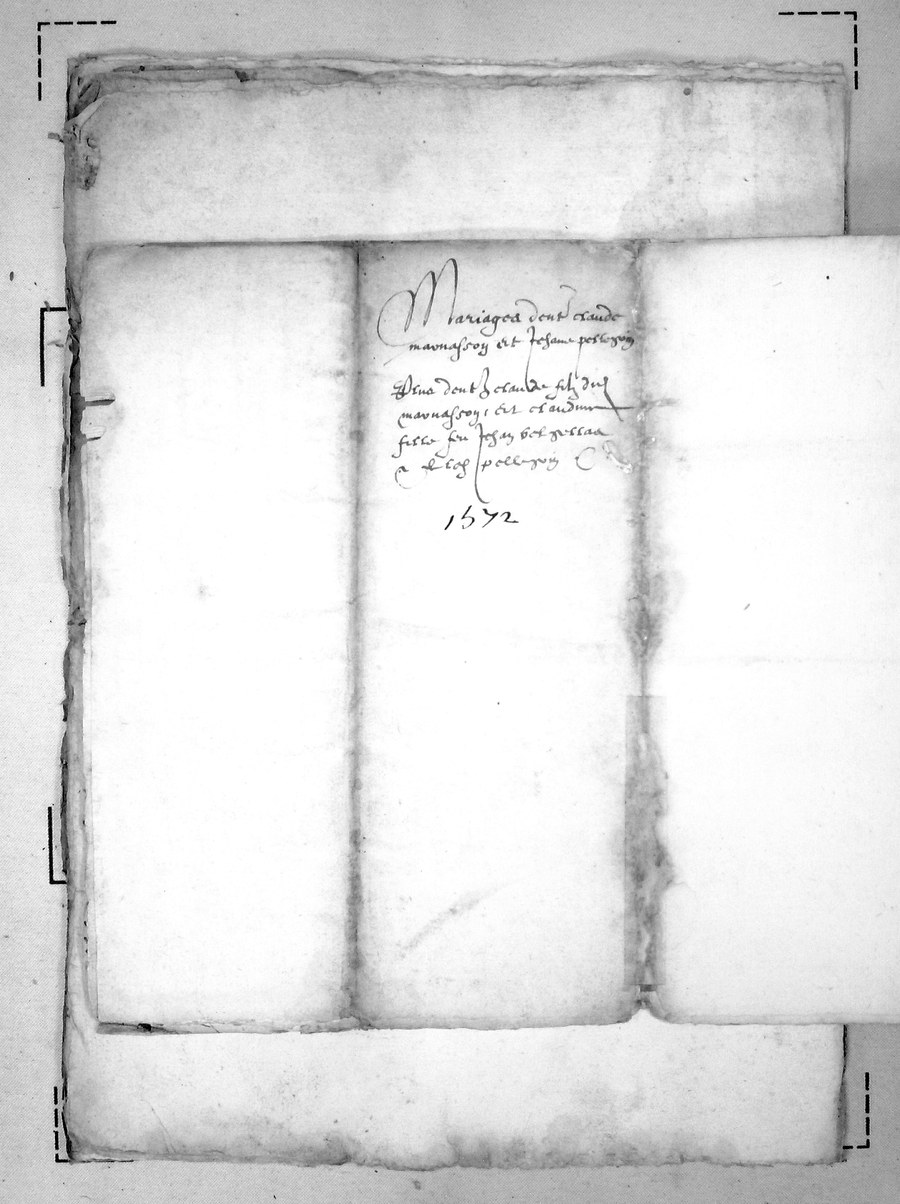 Mariages dent claude
mavnassoy et Jehane pellezoy
Plus dent claude filz du
mavnassoy, et claudine
fille feu Jehan
pellezoy
1572